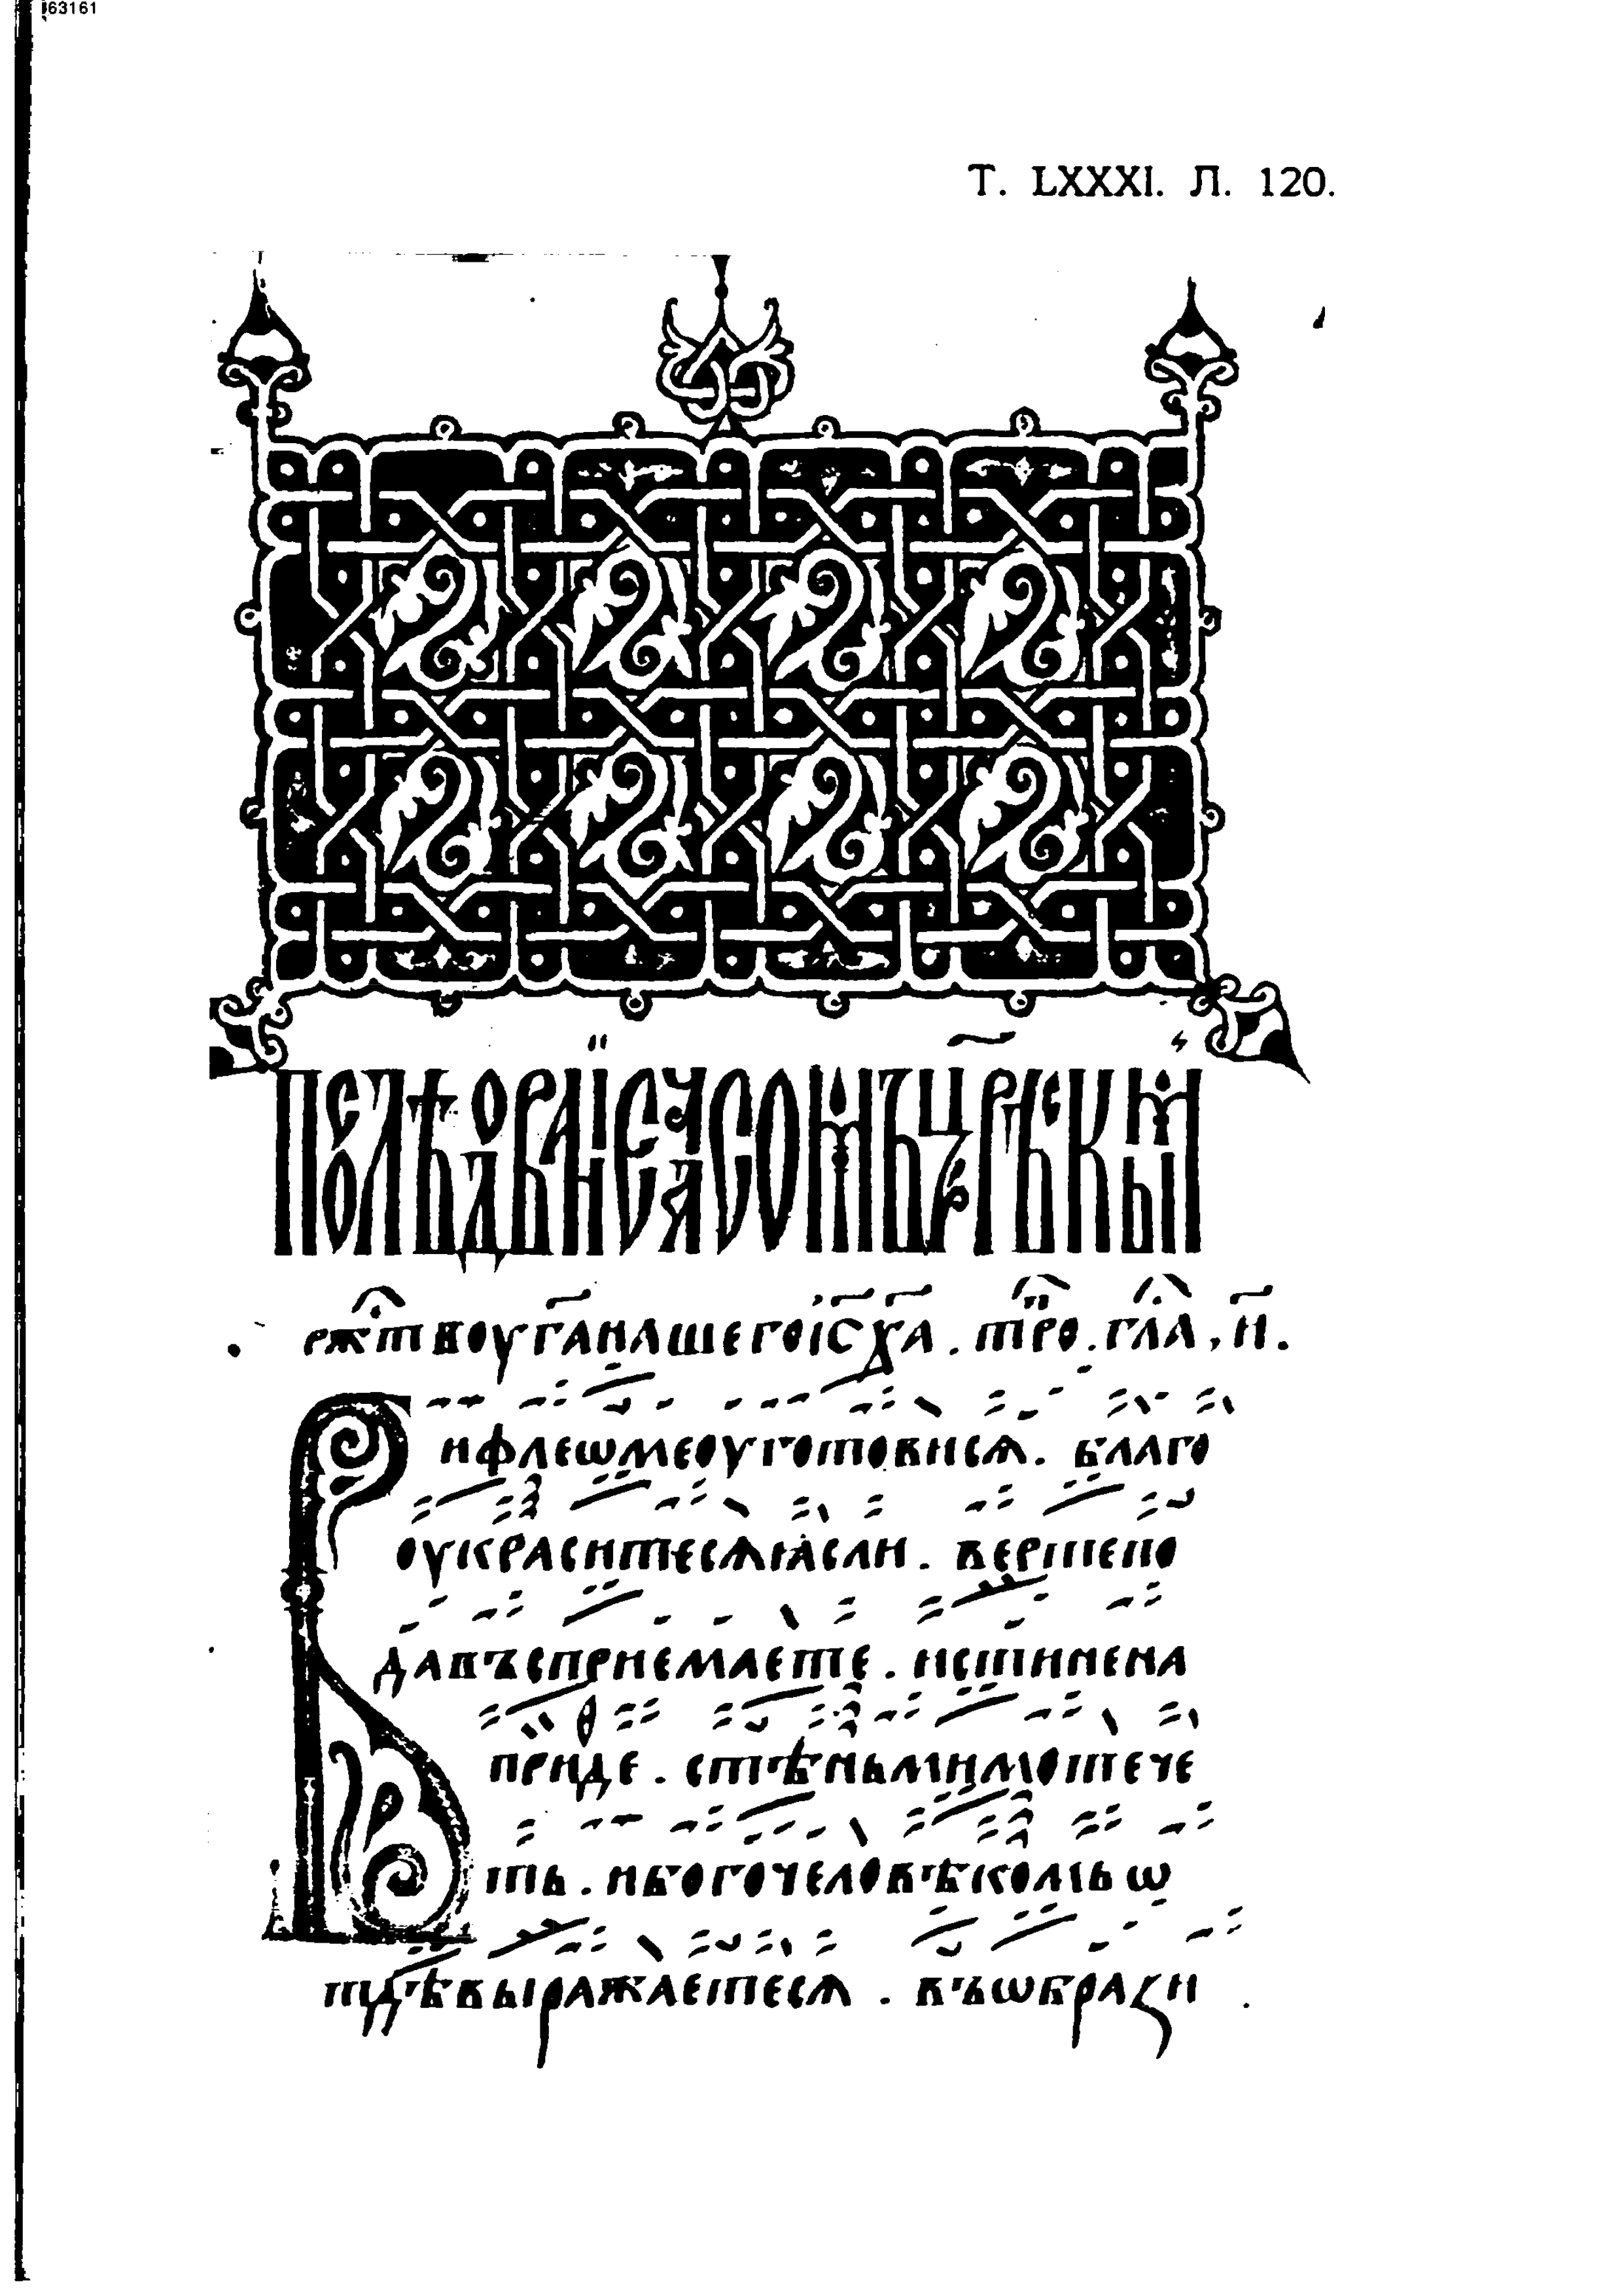 163161
Т. LXXXI. Л. 120.
ПОСЛѢДОВАНІЕ ЧАСОМЪ ЦРЬСКЫМ
рж҃твоу г҃а нашего і҃с х҃а . тро . гла , и҃ .
Внфлеѡме оуготовисѧ . благо
оукраситесѧ ꙗсли . вертепо
давъсприемаете . истинена
приде . стѣнь мимотече
ть . и богочеловѣкомь ѡ
тдѣвыражаетесѧ . въѡбразн